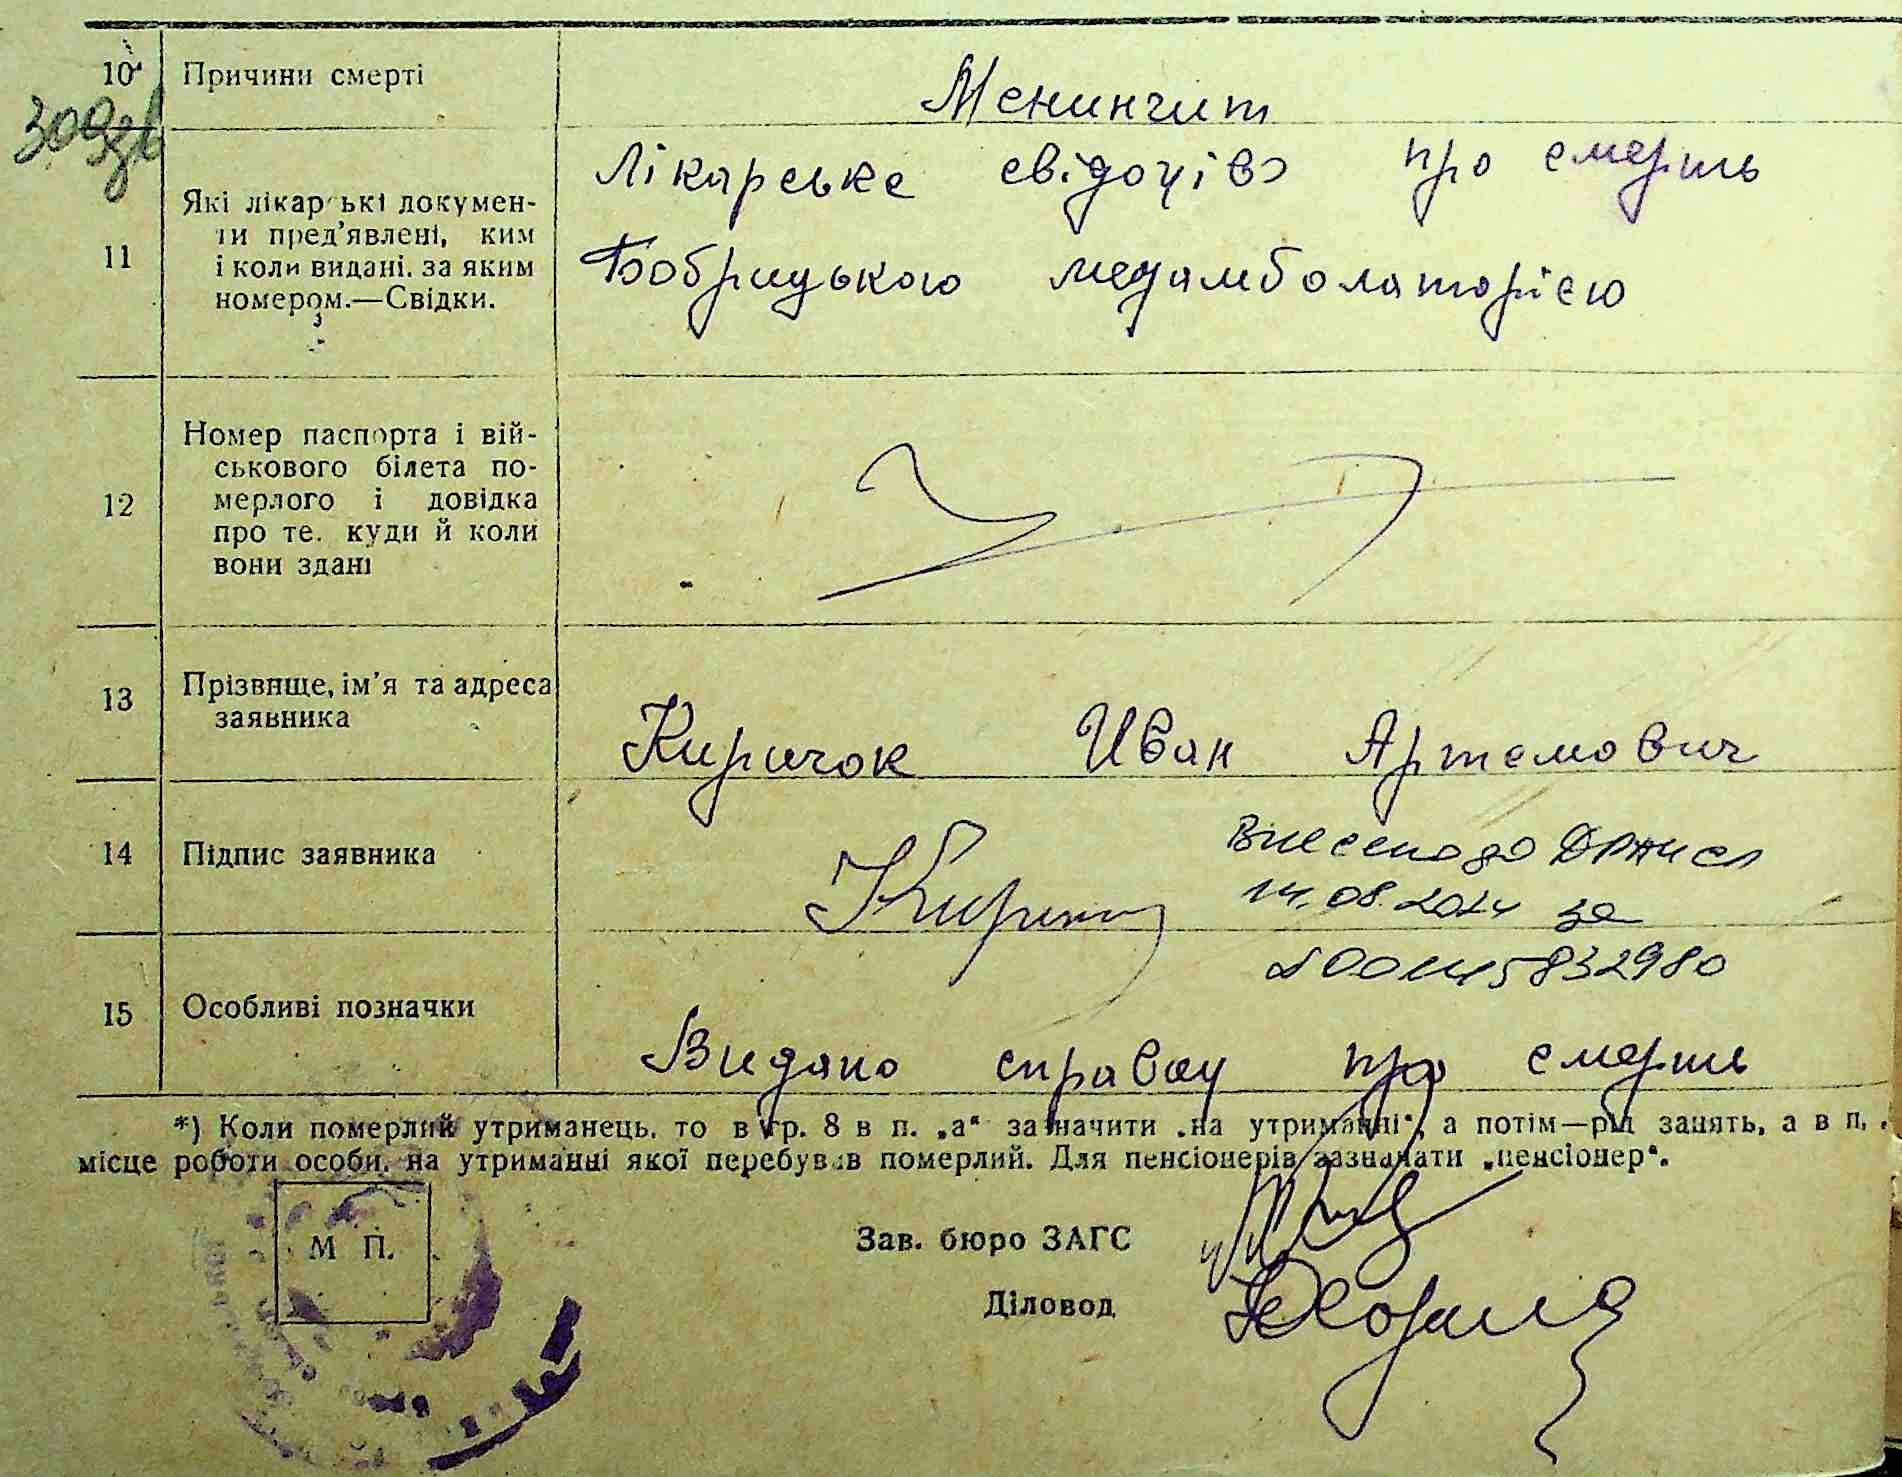 10 Причини смерті
Менингит
11 Які лікарські докумен-
ти пред'явлені, ким
і коли видані. за яким
номером.—Свідки.
Лікарське свідоцтво про смерть
Бобрицькою медамболаторією
12 Номер паспорта і вій-
ськового білета по-
мерлого і довідка
про те. куди й коли
вони здані
13 Прізвище, ім'я та адреса
заявника
Киричок Иван Артемович
14 Підпис заявника
Внесено до ДРАЦСГ
14.08.2024 за
00145832980
15 Особливі позначки
Видано справку про смерть
*) Коли померлий утриманець. то в гр. 8 в п. „а“ зазначити „на утриманні“, а потім—рід занять, а в п.
місце роботи особи. на утриманні якої перебував померлий. Для пенсіонерів зазначати „пенсіонер“.
М П.
Зав. бюро ЗАГС
Діловод